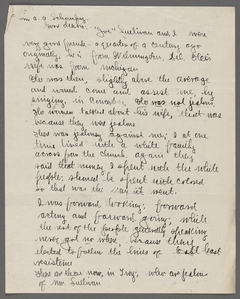 "Joe" Sullivan and I were
very good friends, a quarter of a century ago
originally, he is from Wilmington, Del. Their
wife was from Michigan
He was then, slightly above the average
and would come and assist me, by
singing, in concerts. He was not jealous
He women talked about his wife, that was
because they was jealous
She was jealous against me; I at one
time lived with a white family
across from the church again they
said that money I spent with the white
people; should be spent with colored
so that was the way it went.
I was forward looking; forward
acting and forward going, while
the rest of the people generally speaking
never got no where, because they
elected to follow the lines of least
resistence
there are those now, in Troy, who are jealous
of Mr. Sullivan